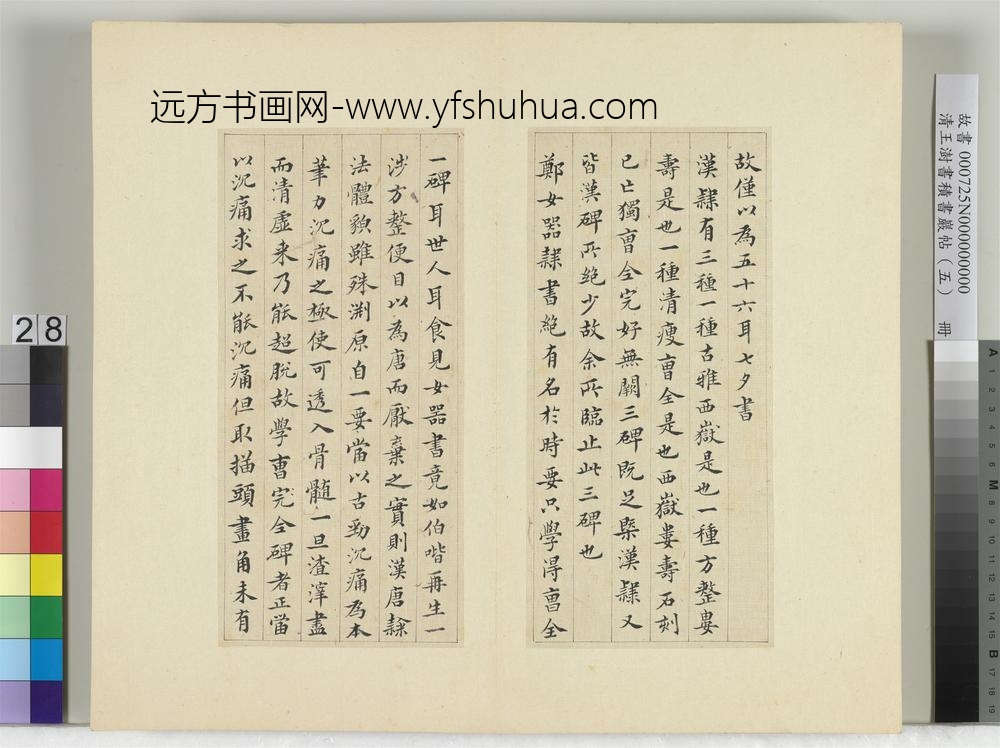 远方书画网-www.yfshuhua.com
故僅以為五十六耳七夕書
漢隸有三種一種古雅西嶽是也一種方整婁
壽是也一種清瘦曺全是也西嶽婁壽石刻
已亡獨曺全完好無闕三碑既足槩漢隸又
皆漢碑所絶少故余所臨止此三碑也
鄭女器隸書絶有名於時要只學得曺全
一碑耳世人耳食見女器書竟如伯喈再生一
涉方整便目以為唐而厭棄之實則漢唐隸
法體貌雖殊淵原自一要當以古勁沉痛為本
筆力沉痛之極使可透入骨髓一旦渣滓盡
而清虛来乃能超脫故學曺完全碑者正當
以沉痛求之不能沉痛但取描頭畫角未有
故書 000725N000000000
清王澍書積書巖帖（五） 冊
28
A 1 2 3 4 5 6 M 8 9 10 11 12 13 14 15 B 17 18 19